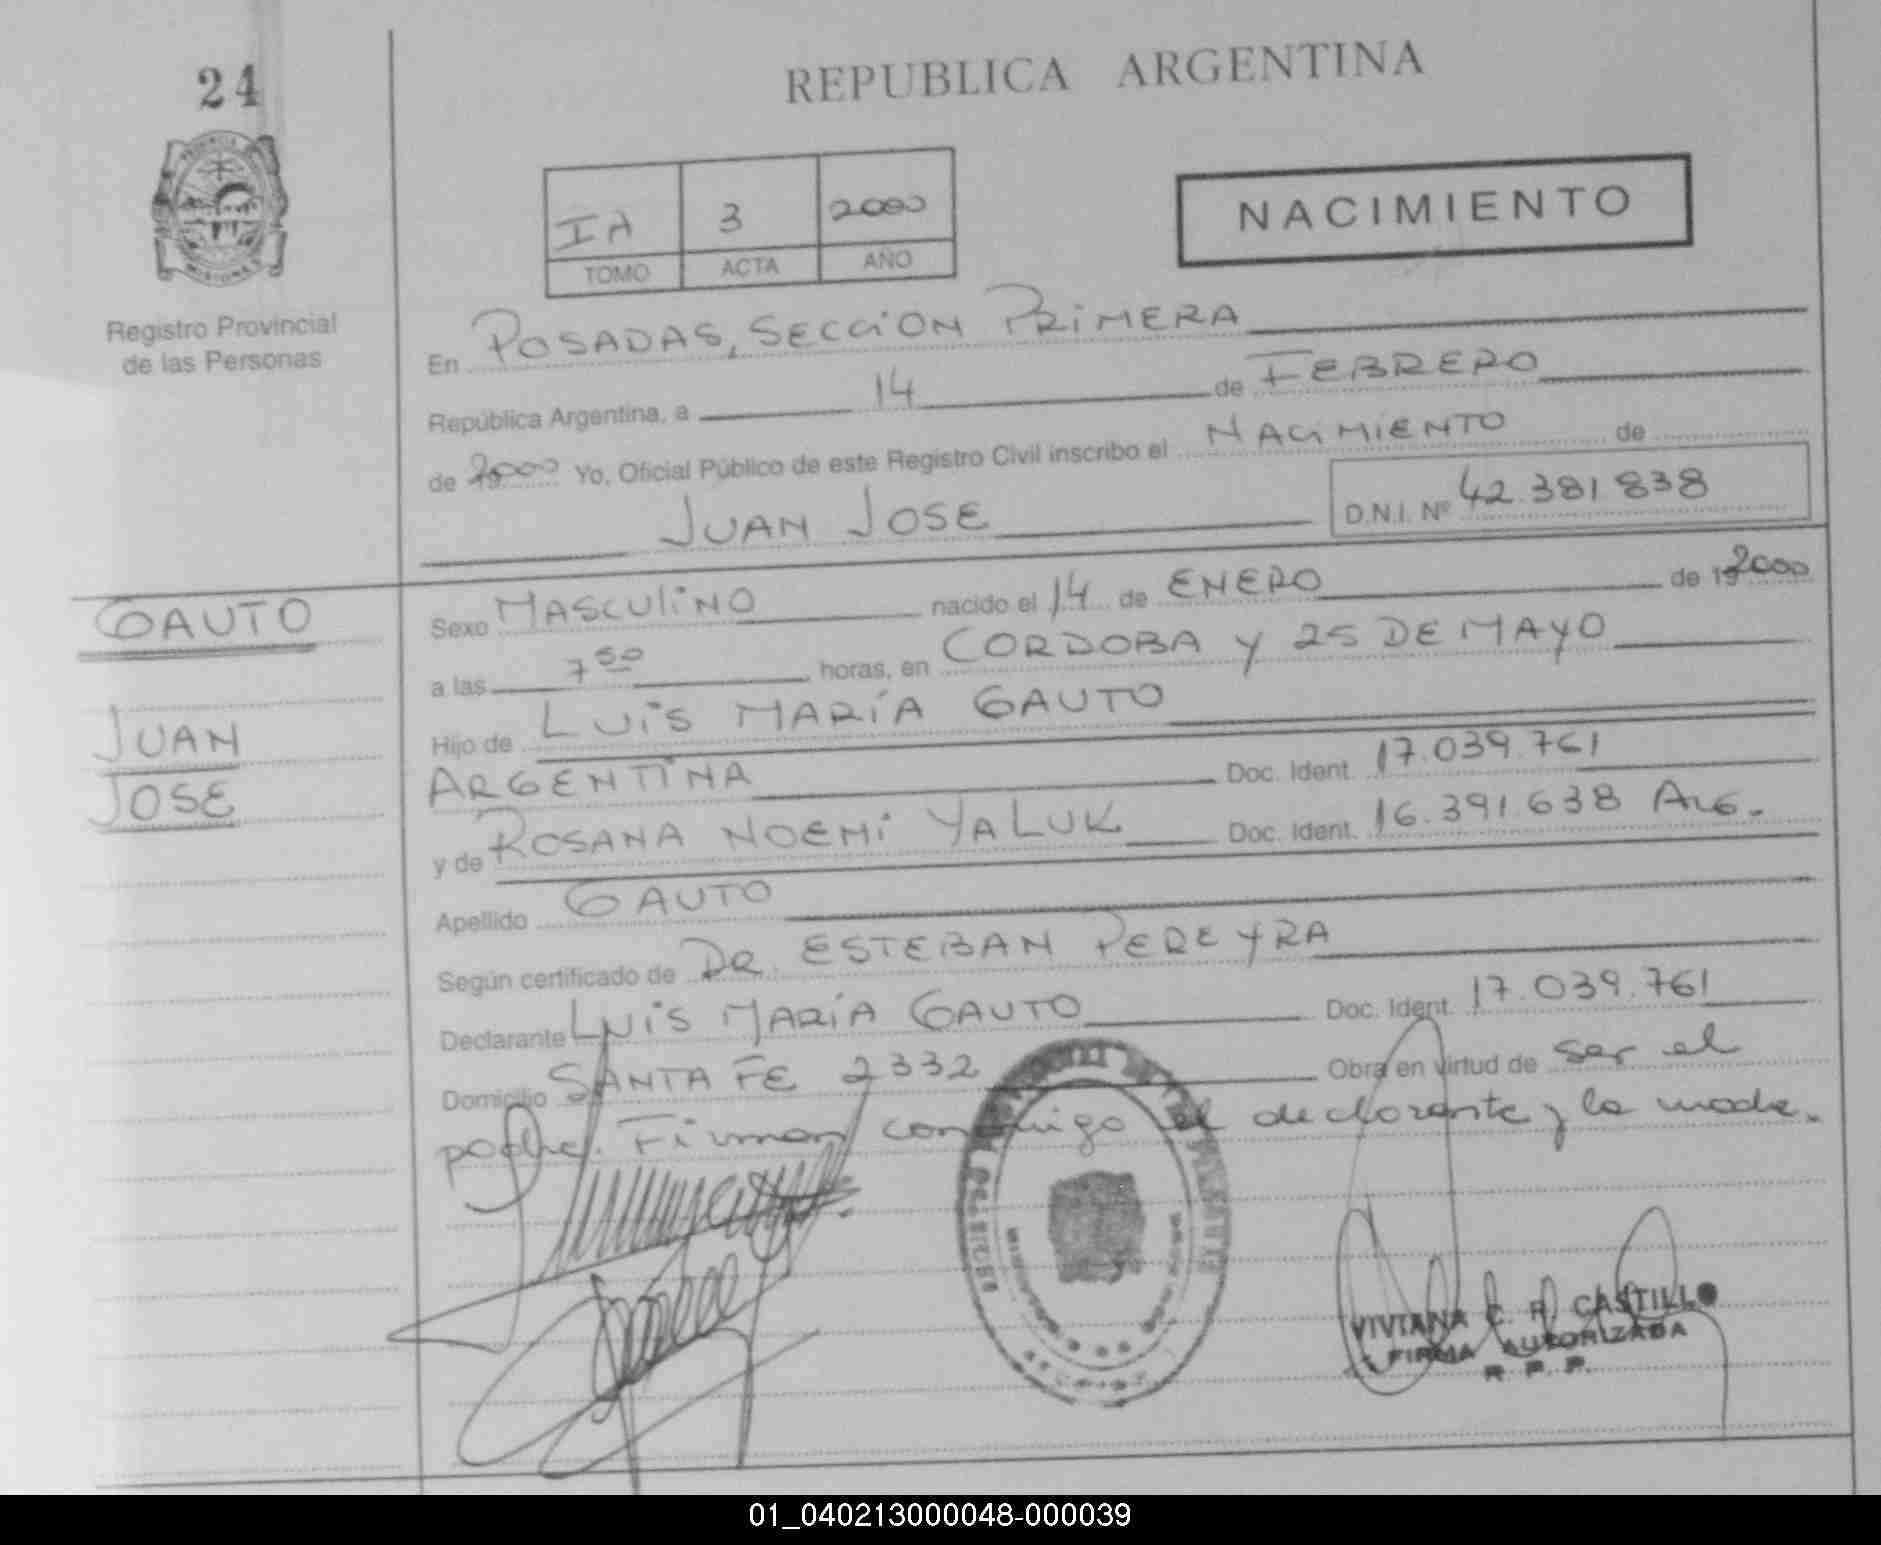 24
REPUBLICA ARGENTINA
IA 3 2000
TOMO ACTA AÑO
NACIMIENTO
PROVINCIA DE
MISIONES
Registro Provincial
de las Personas
En POSADAS, SECCION PRIMERA
República Argentina, a 14 de FEBRERO
de 2000 Yo, Oficial Público de este Registro Civil inscribo el NACIMIENTO de
JUAN JOSE D.N.I. Nº 42.381.838
GAUTO
JUAN
JOSE
Sexo MASCULINO nacido el 14 de ENERO de 192000
a las 7 50 horas, en CORDOBA Y 25 DE MAYO
Hijo de LUIS MARÍA GAUTO
ARGENTINA Doc. Ident. 17.039.761
y de ROSANA NOEMI YALUK Doc. Ident. 16.391.638 ARG.
Apellido GAUTO
Según certificado de DR. ESTEBAN PEREYRA
Declarante LUIS MARÍA GAUTO Doc. Ident. 17.039.761
Domicilio SANTA FE 2332 Obra en virtud de ser el
padre. Firman conmigo el declarante y la madre.
VIVIANA C. R. CASTILLO
FIRMA AUTORIZADA
R. P. P.
01_040213000048-000039